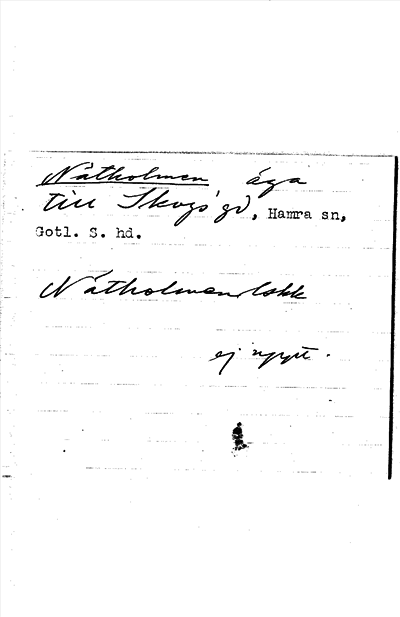 Nåtholmen äga
till Skogs gd, Hamra sn,
Gotl. S. hd.
Nåtholmen lskk
ej uppt.